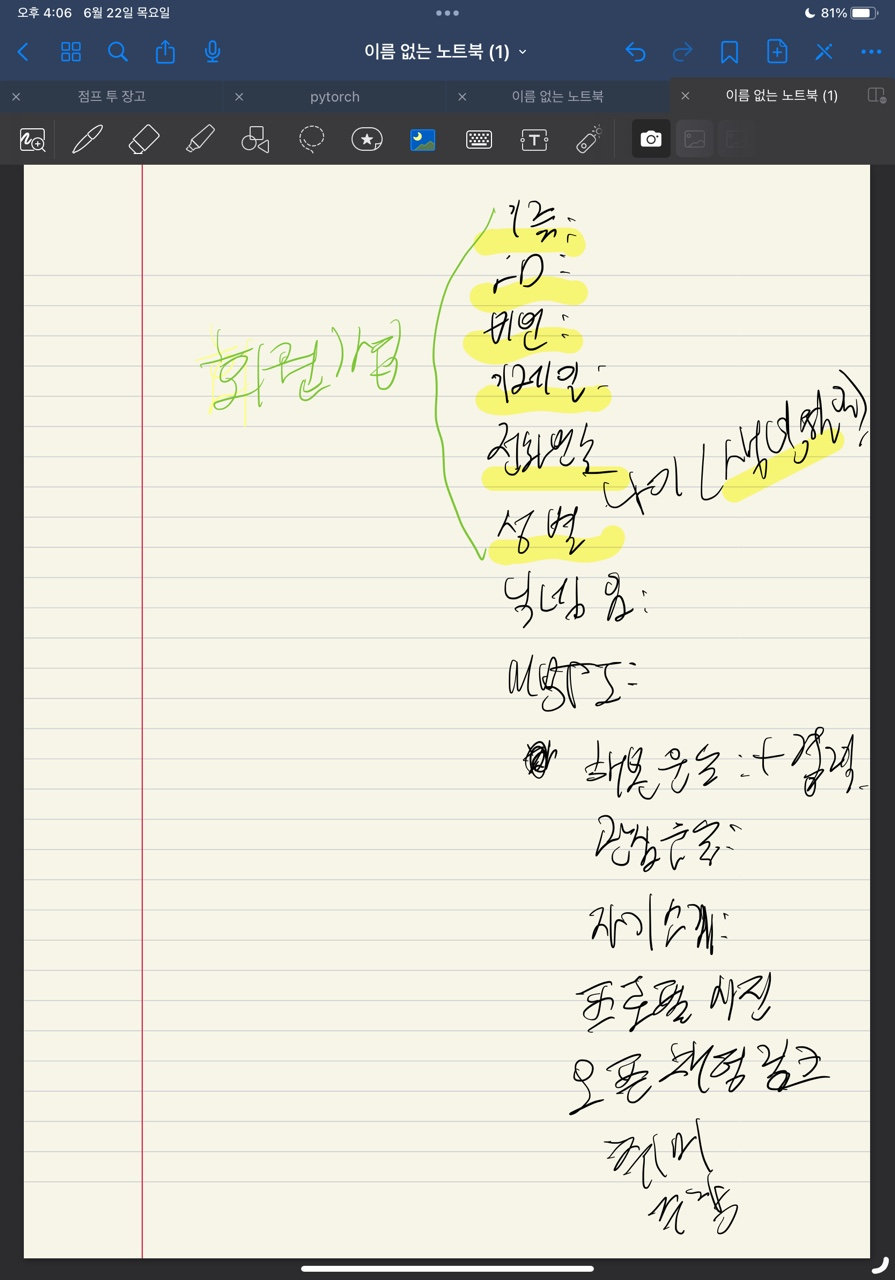 오후 4:06 6월 22일 목요일
81%
이름 없는 노트북 (1)
점프 투 장고
pytorch
이름 없는 노트북
이름 없는 노트북 (1)
이름:
ID:
비번:
이메일:
회원가입
전화번호
나이 (생년월일)
성별
닉네임:
MBTI:
해본 운동: + 경력
관심 운동:
자기소개:
프로필 사진
오픈 채팅 링크
취미